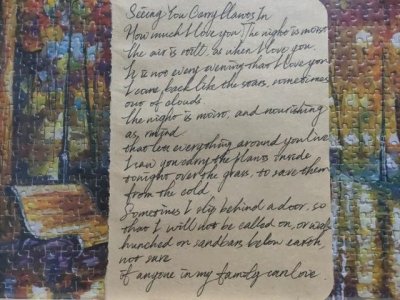 Seeing You Carry Plants In
How much I love you. The night is moist
the air is still, as when I love you.
It is not every evening that I love you
I come back like the stars, sometimes
out of clouds
the night is moist, and nourishing
as, mind
that lets everything around you live
I saw you carry the plants inside
tonight over the grass, to save them
from the cold
Sometimes I slip behind a door, so
that I will not be called on, or
hunched on sandbars below earth,
not sure
if anyone in my family can love